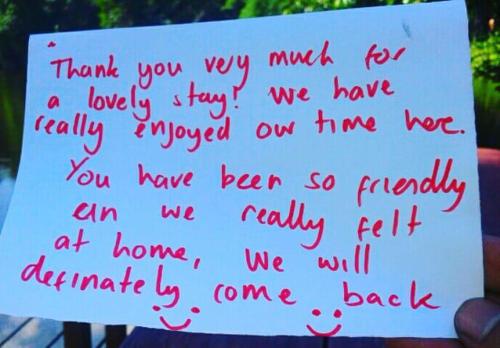 Thank you very much for
a lovely stay! We have
really enjoyed our time here.
You have been so friendly
an we really felt
at home, We will
definately come back